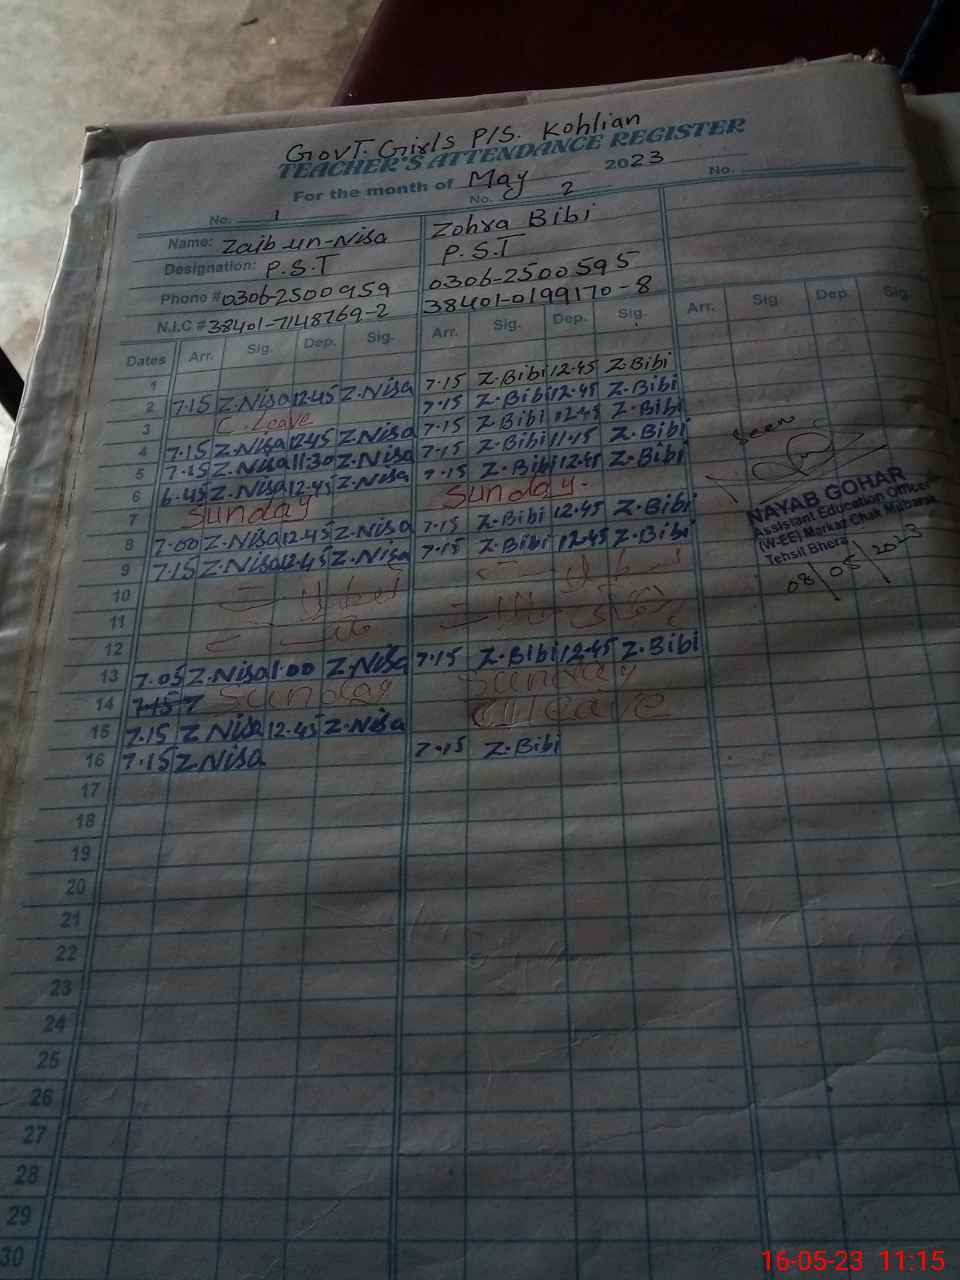 GOVT. Girls P/S. Kohlian
TEACHER'S ATTENDANCE REGISTER
For the month of May 2023
No. 1 No. 2 No.
Name: Zaib-un-Nisa Zohra Bibi
Designation: P.S.T P.S.T
Phone # 0306-2500959 0306-2500595
N.I.C # 38401-7148769-2 38401-0199170-8
Dates Arr. Sig. Dep. Sig. Arr. Sig. Dep. Sig. Arr. Sig. Dep. Sig.
1 7.15 Z.Nisa 12.45 Z.Nisa 7.15 Z.Bibi 12.45 Z.Bibi
2 C. Leave 7.15 Z.Bibi 12.45 Z.Bibi
3 7.15 Z.Nisa 12.45 Z.Nisa 7.15 Z.Bibi 12.45 Z.Bibi
4 7.15 Z.Nisa 11.30 Z.Nisa 7.15 Z.Bibi 11.15 Z.Bibi
5 6.45 Z.Nisa 12.45 Z.Nisa 7.15 Z.Bibi 12.45 Z.Bibi
6 Sunday Sunday.
7 7.00 Z.Nisa 12.45 Z.Nisa 7.15 Z.Bibi 12.45 Z.Bibi
8 7.15 Z.Nisa 12.45 Z.Nisa 7.15 Z.Bibi 12.45 Z.Bibi
9
10
11
12
13 7.05 Z.Nisa 1.00 Z.Nisa 7.15 Z.Bibi 12.45 Z.Bibi
14 Sunday Sunday
15 7.15 Z.Nisa 12.45 Z.Nisa C/Leave
16 7.15 Z.Nisa 7.15 Z.Bibi
17
18
19
20
21
22
23
24
25
26
27
28
29
30
Seen
NAYAB GOHAR
Assistant Education Officer
(W-EE) Markaz Chak Mubarak
Tehsil Bhera
08/05/2023
16-05-23 11:15